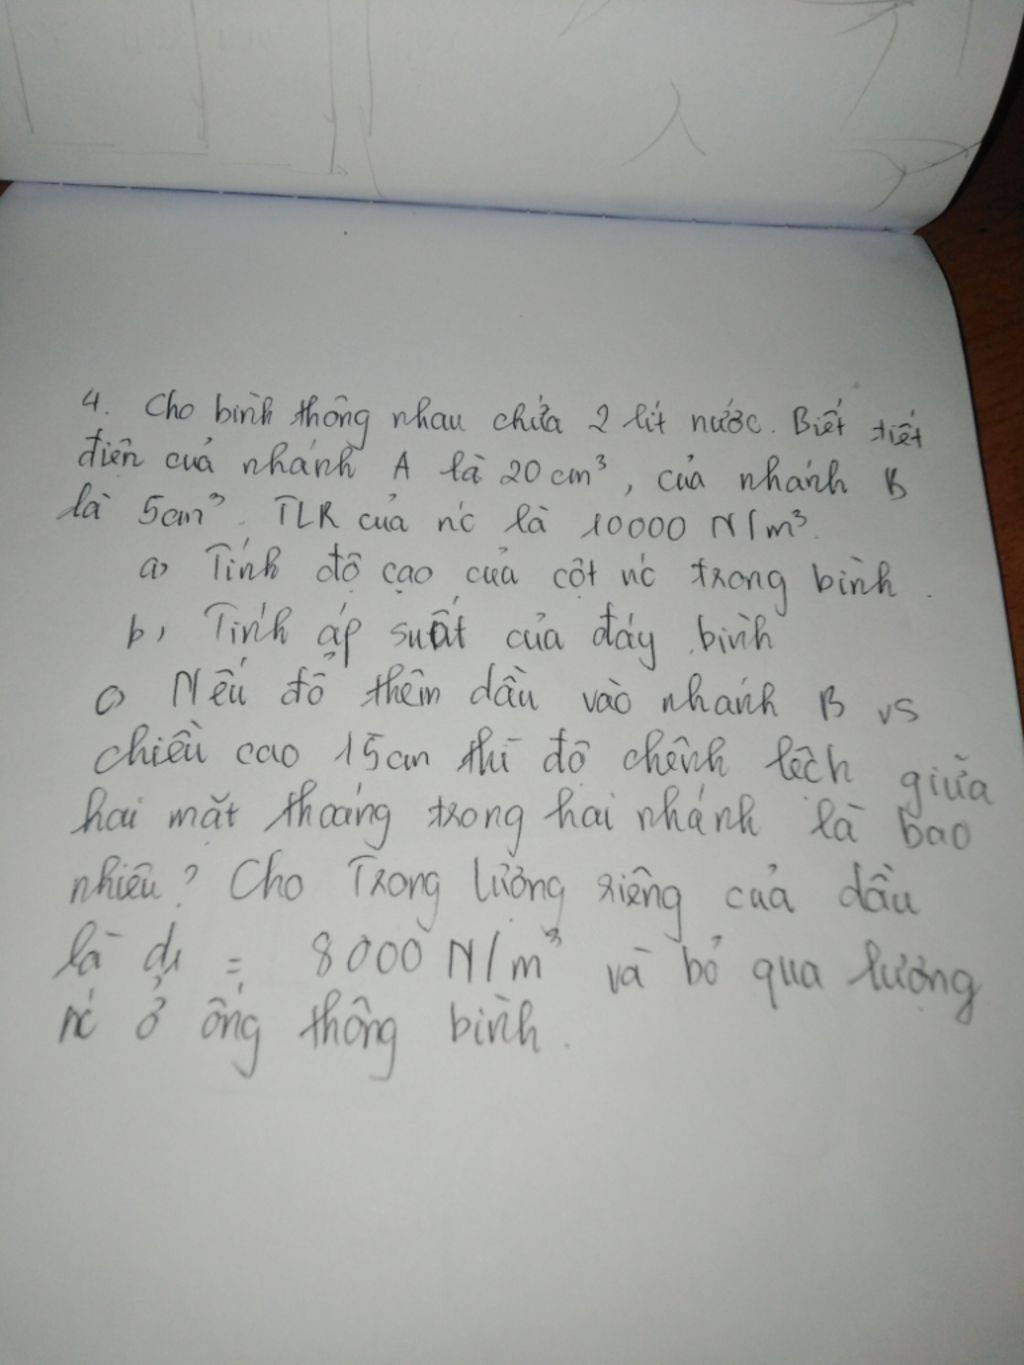 4. Cho bình thông nhau chứa 2 lít nước. Biết tiết
điện của nhánh A là 20 cm³, của nhánh B
là 5cm³. TLR của nc là 10000 N/m³.
a) Tính độ cao của cột nc trong bình.
b, Tính áp suất của đáy bình
c) Nếu đổ thêm dầu vào nhánh B vs
chiều cao 15cm thì độ chênh lệch giữa
hai mặt thoáng trong hai nhánh là bao
nhiêu? Cho Trọng lượng riêng của dầu
là d₁ = 8000 N/m³ và bỏ qua lượng
nc ở ống thông bình.